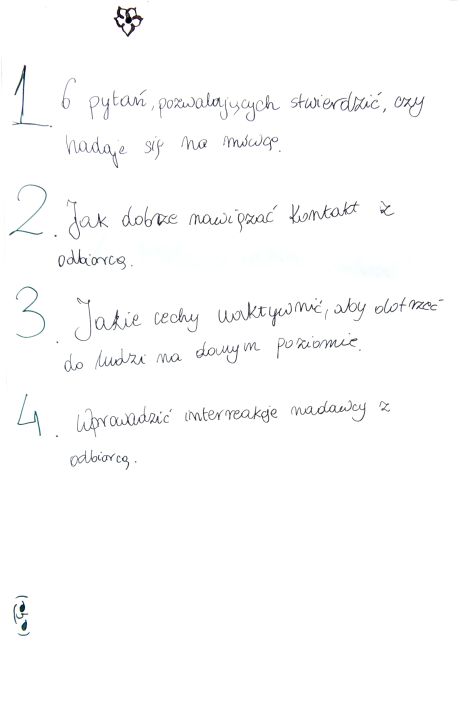 1. 6 pytań, pozwalających stwierdzić, czy
nadaje się na mówcę.
2. Jak dobrze nawiązać kontakt z
odbiorcą.
3. Jakie cechy uaktywnić, aby dotrzeć
do ludzi na danym poziomie.
4. Wprowadzić interreakcje nadawcy z
odbiorcą.